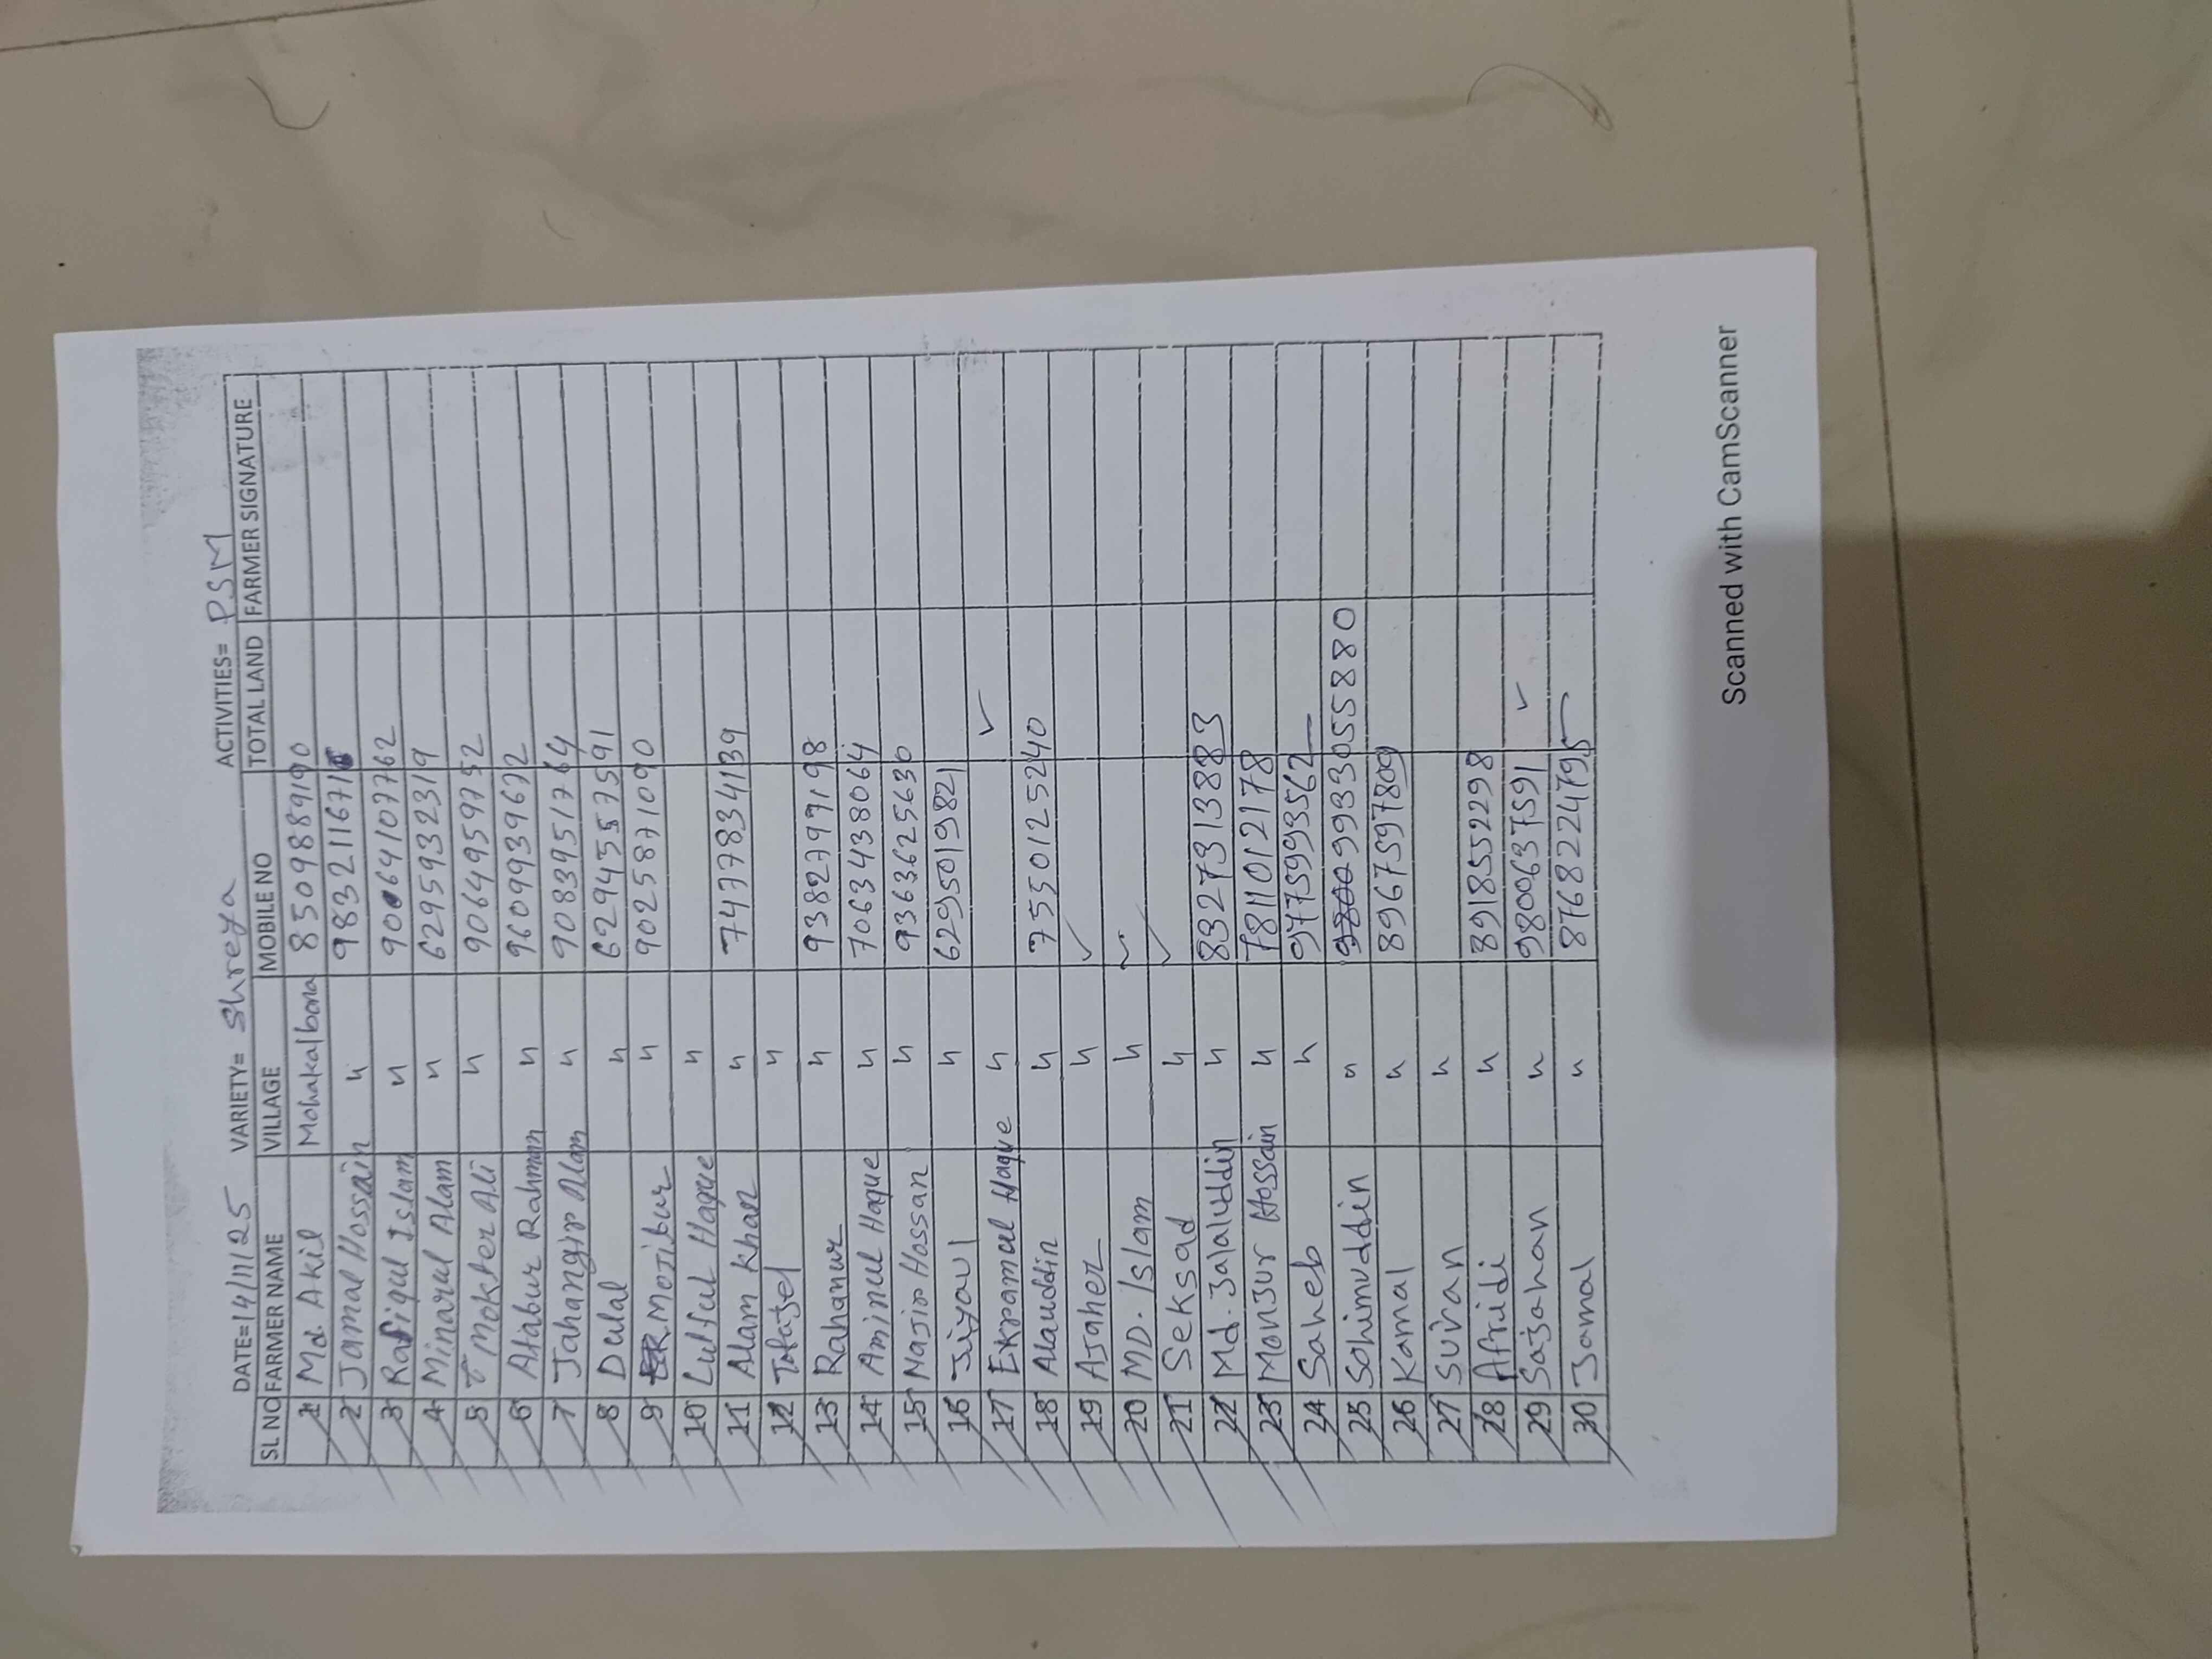 DATE=14/11/25 VARIETY= Shreya ACTIVITIES= PSM
SL NO FARMER NAME VILLAGE MOBILE NO TOTAL LAND FARMER SIGNATURE
1 Md. Akil Mohakalbona 8509889190
2 Jamal Hossain 〃 983211671
3 Rafiqul Islam 〃 9064107762
4 Minarul Alam 〃 6295932319
5 Mokter Ali 〃 9064959752
6 Atabur Rahman 〃 9609939672
7 Jahangir Alam 〃 9083951764
8 Dulal 〃 6294557591
9 Mojibur 〃 9025871090
10 Lulful Haque 〃
11 Alam Khan 〃 7477834139
12 Tofajel 〃
13 Rahanur 〃 9382799198
14 Aminul Haque 〃 7063438064
15 Najir Hossan 〃 9363625630
16 Jiyaul 〃 6295019821
17 Ekramul Haque 〃 ✓
18 Alauddin 〃 7550125240
19 Ajaher 〃 ✓
20 MD. Islam 〃 ✓
21 Seksad 〃 ✓
22 Md. Jalaluddin 〃 8327313883
23 Monsur Hossain 〃 7811012178
24 Saheb 〃 9775993562
25 Sohimuddin 〃 9933055880
26 Kamal 〃 8967597809
27 Suran 〃
28 Afridi 〃 8918552298
29 Sajahan 〃 9800637591 ✓
30 Jamal 〃 8768224795
Scanned with CamScanner